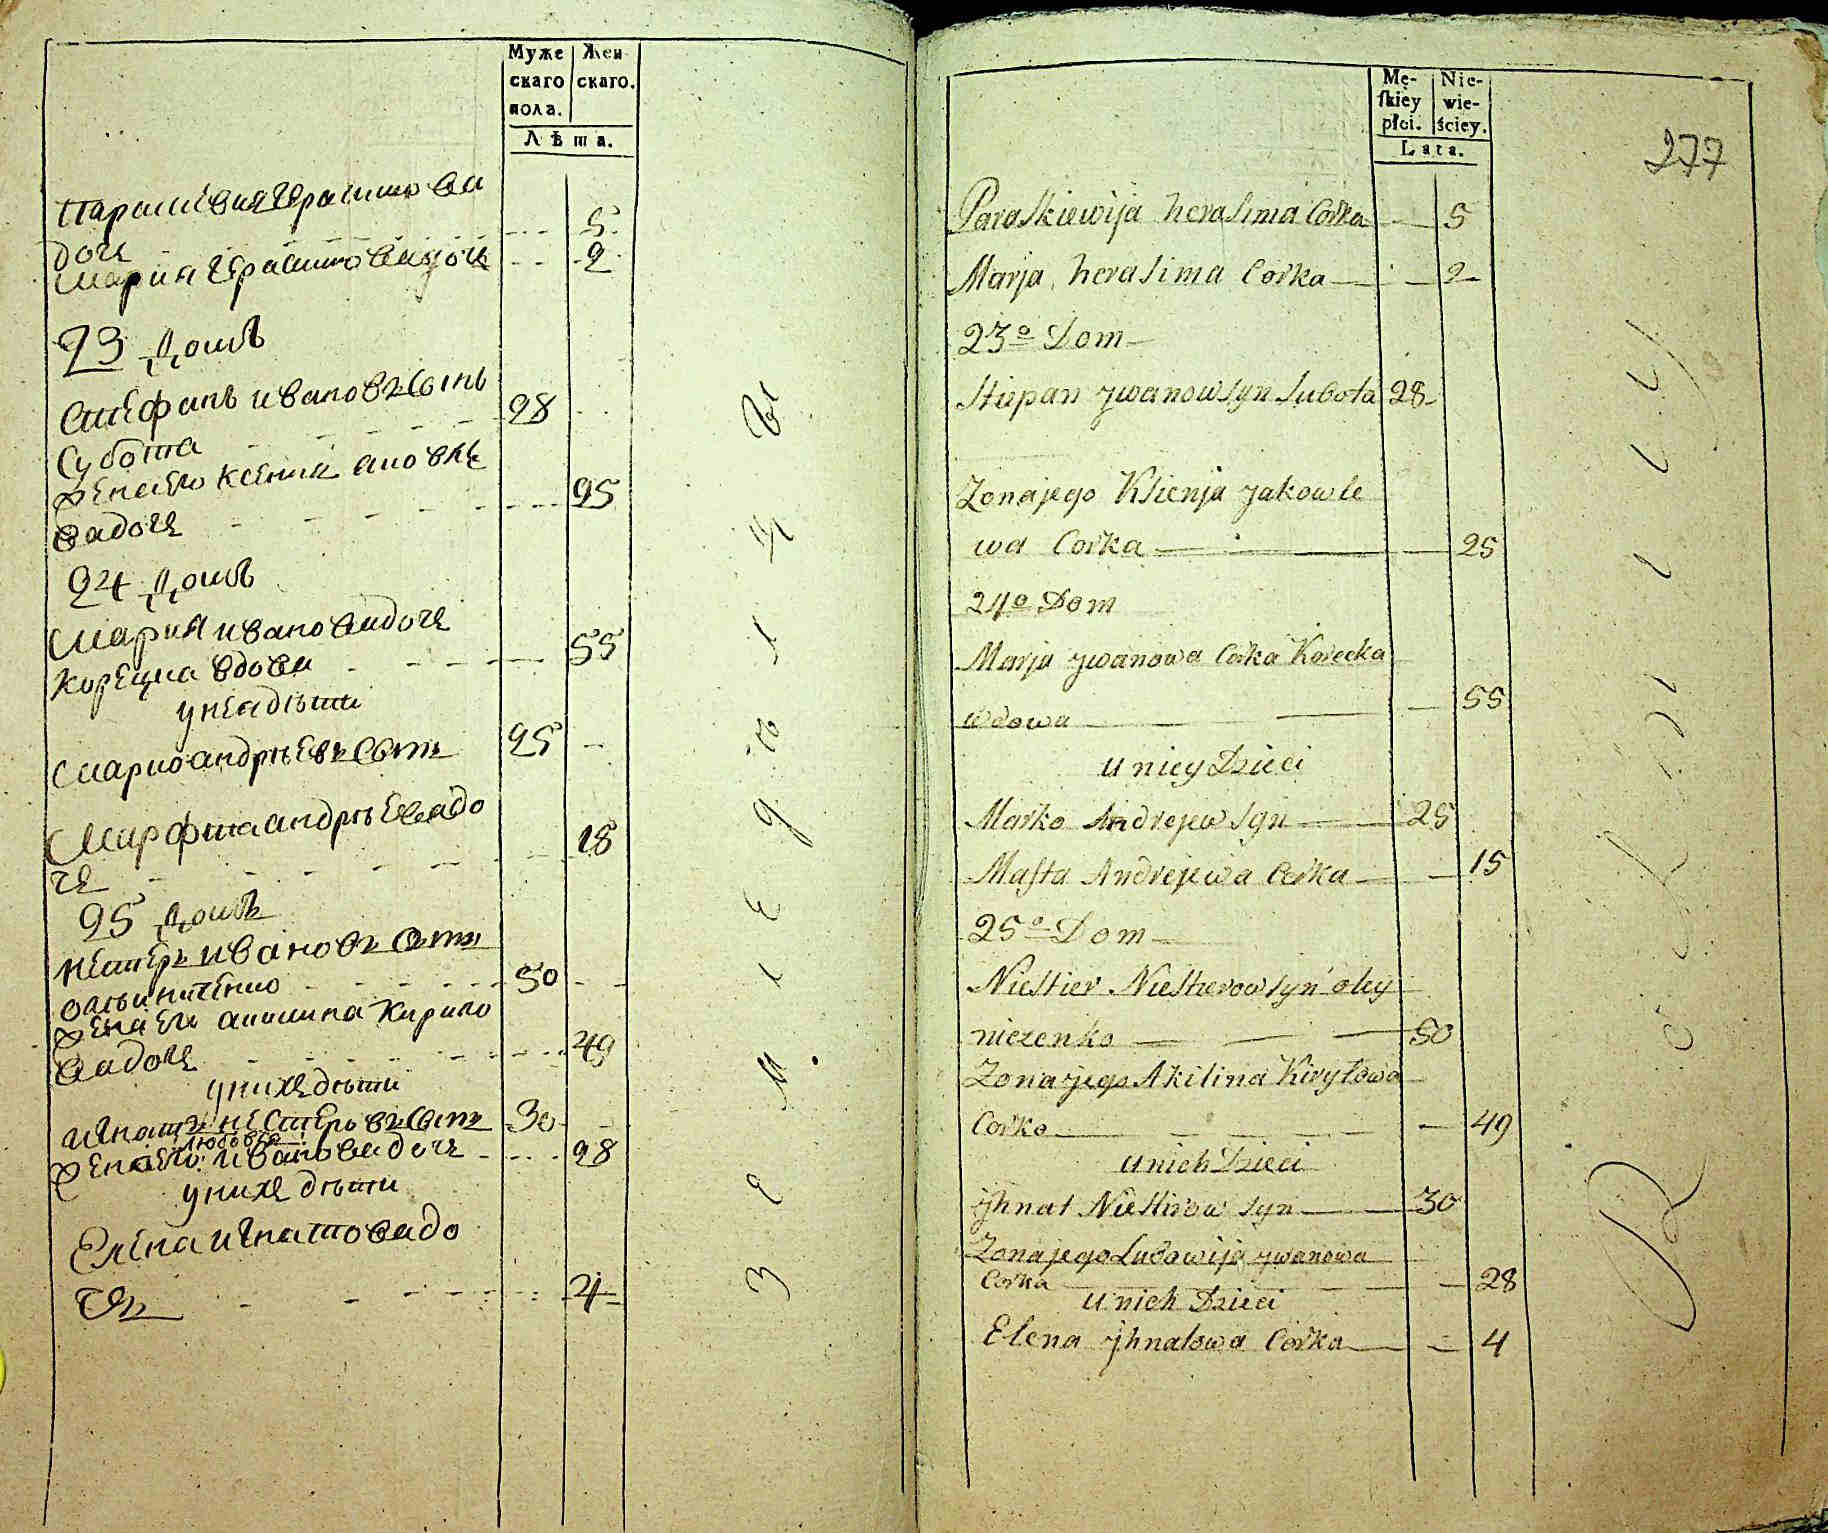 Муже
скаго
пола.
Жен
скаго.
Лѣта.
Параскивия Герасимова
дочь 5
Мария Герасимова дочь 2
23 Домъ
Стефанъ Ивановъ Сынъ
Субота 28
Жена его Ксения
вадочь 25
24 Домъ
Мария Иванова дочь
Корецка вдова 55
у нея дѣти
Марко андрѣевъ Сынъ 25
Марфта андрѣевадо
чь 18
25 Домъ
Нестеръ Ивановъ Сынъ
50
Жена его Акилина Кирило
вадочь 49
у нихъ дѣти
Игнатъ Нестеровъ Сынъ 30
Любовия
Жена его Иванова дочь 28
у нихъ дѣти
Елена Игнатовадо
чь 4
Земледѣлцы
Mę-
skiey
płci.
Nie-
wie-
ściey.
Lata.
277
Paraskiewija herasima Corka 5
Marja herasima Corka 2
23o Dom
Stiepan Jwanow syn Subota 28
Zona jego Ksienja Jakowle
wa Corka 25
24o Dom
Marja Jwanowa Corka Korecka
wdowa 55
u niey Dzieci
Marko Andrejew syn 25
Mafta Andrejewa Corka 15
25o Dom
Niestier Niestierow syn oley
niczenko 50
Zona jego Akilina Kiryłowa
Corka 49
u nich Dzieci
Jhnat Niestirow syn 30
Zona jego Lubowija Jwanowa
Corka 28
u nich Dzieci
Elena Jhnatowa Corka 4
Rolnicy